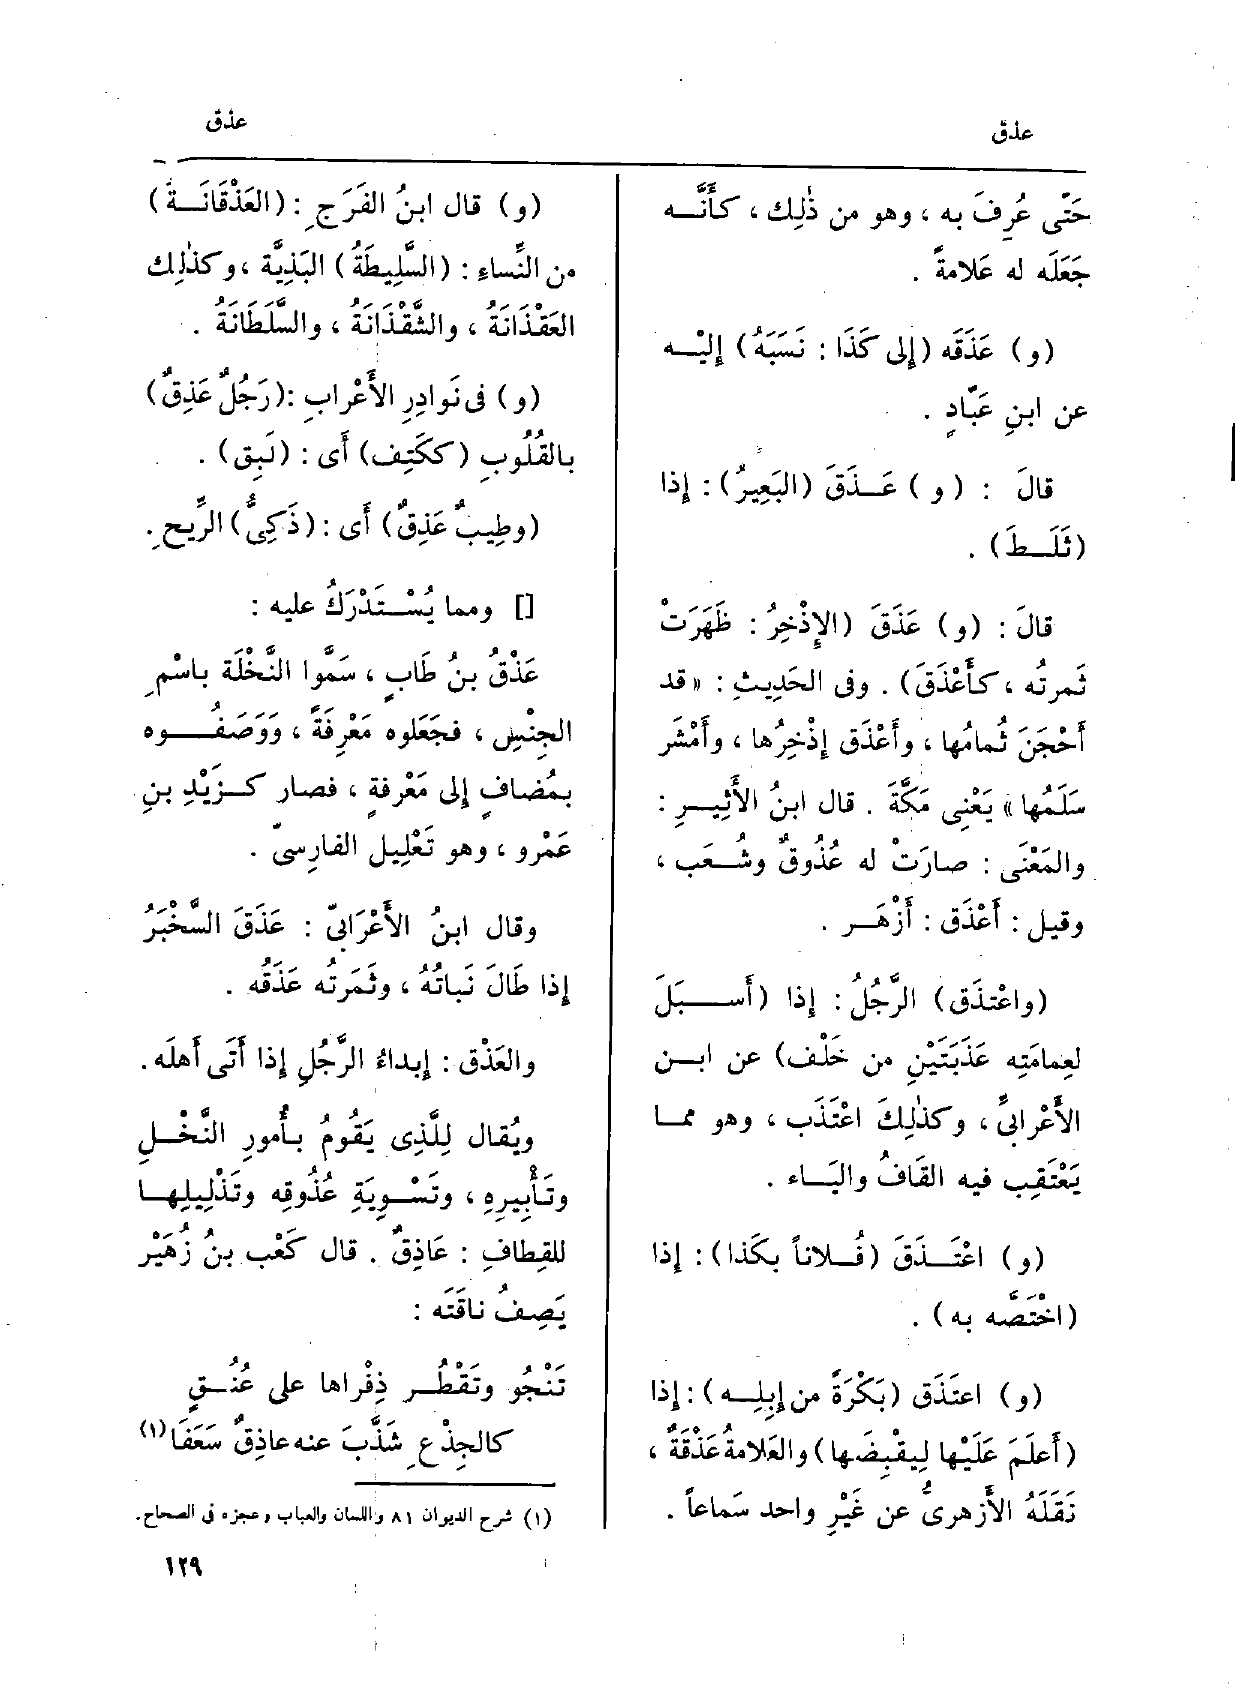 عذق
عذق
حَتّى عُرِفَ به ، وهو من ذٰلِك ، كأَنَّــه
جَعَلَه له عَلامةً .
(و) عَذَقَه (إِلى كَذَا : نَسَبَهُ) إِليْـــه
عن ابنِ عَبّادٍ .
قالَ : (و) عَــذَقَ (البَعِيرُ) : إِذا
(ثَلَــطَ) .
قالَ : (و) عَذَقَ (الإِذْخِرُ : ظَهَرَتْ
ثَمرتُه ، كأَعْذَقَ) . وفى الحَدِيثِ : «قد
أَحْجَنَ ثُمامُها ، وأَعْذَق إِذْخِرُها ، وأَمْشَر
سَلَمُها» يَعْنِى مَكَّةَ . قال ابنُ الأَثِيــرِ :
والمَعْنَى : صارَتْ له عُذُوقٌ وشُــعَب ،
وقيل : أَعْذَق : أَزْهَــر .
(واعْتذَق) الرَّجُلُ : إِذا (أَســـبَلَ
لعِمامَتِه عَذَبَتَيْنِ من خَلْف) عن ابــن
الأَعْرابىِّ ، وكذٰلِكَ اعْتَذَب ، وهو ممــا
يَعْتَقِب فيه القَافُ والبَــاء .
(و) اعْتَــذَقَ (فُــلاناً بكَذا) : إِذا
(اخْتَصَّه به) .
(و) اعتَذَق (بَكْرَةً من إِبِلِــه) : إِذا
(أَعلَمَ عَلَيْها لِيقْبِضَها) والعَلامةُ عَذْقَةٌ ،
نَقَلَهُ الأَزْهرىُّ عن غَيْرِ واحد سَماعاً .
(و) قال ابنُ الفَرَجِ : (العَذْقَانَــةُ)
من النِّساءِ : (السَّلِيطَةُ) البَذِيَّة ، وكذٰلِك
العَقْذَانَةُ ، والشَّقْذَانَةُ ، والسَّلَطَانَةُ .
(و) فى نَوادِرِ الأَعْرابِ : (رَجُلٌ عَذِقٌ)
بالقُلُوبِ (ككَتِف) أَى : (لَبِق) .
(وطِيبٌ عَذِقٌ) أَى : (ذَكِىُّ) الرِّيحِ .
[] ومما يُسْــتَدْرَكُ عليه :
عَذْقُ بنُ طَابٍ ، سَمَّوا النَّخْلَة باسْمِ
الجِنْسِ ، فجَعَلوه مَعْرِفَةً ، وَوَصَفُـــوه
بمُضافٍ إِلى مَعْرِفةٍ ، فصار كــزَيْدِ بنِ
عَمْرو ، وهو تَعْلِيل الفارسىّ .
وقال ابنُ الأَعْرَابىّ : عَذَقَ السَّخْبَرُ
إِذا طَالَ نَباتُهُ ، وثَمَرتُه عَذَقُه .
والعَذْق : إِبداءُ الرَّجُلِ إِذا أَتَى أَهلَه .
ويُقال لِلَّذِى يَقُومُ بــأُمورِ النَّخْــلِ
وتَأْبِيرِهِ ، وتَسْــوِيَةِ عُذُوقِه وتَذْلِيلِهــا
للقِطافِ : عَاذِقٌ . قال كَعْب بنُ زُهَيْر
يَصِفُ ناقَتَه :
تَنْجُو وتَقْطُــر ذِفْراها على عُنُــقٍ
كالجِذْعِ شَذَّبَ عنه عاذِقٌ سَعَفَا (١)
(١) شرح الديوان ٨١ واللسان والعباب وعجزه فى الصحاح.
١٢٩